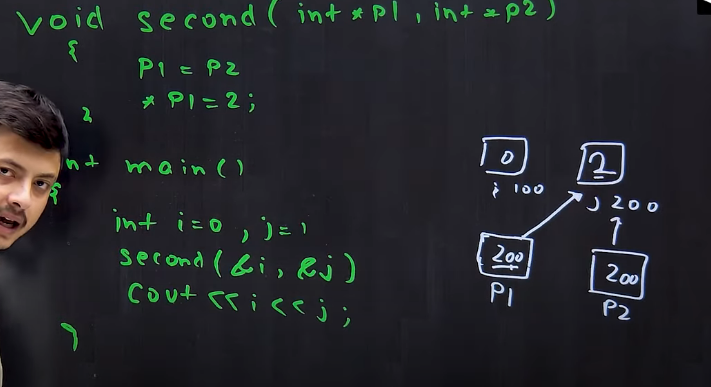 void second( int *p1 , int *p2 )
{
P1 = P2
* P1 = 2 ;
}
int main()
{
int i=0 , j=1
second(&i, &j)
cout << i << j ;
}
0
2
i 100
j 200
200
200
P1
P2